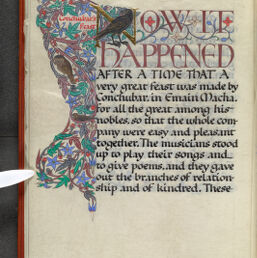 Conchubar's
Feast
NOW IT
HAPPENED
AFTER A TIME THAT A
very great feast was made by
Conchubar, in Emain Macha,
for all the great among his
nobles, so that the whole com-
pany were easy and pleasant
together. The musicians stood
up to play their songs and
to give poems, and they gave
out the branches of relation-
ship and of kindred. These